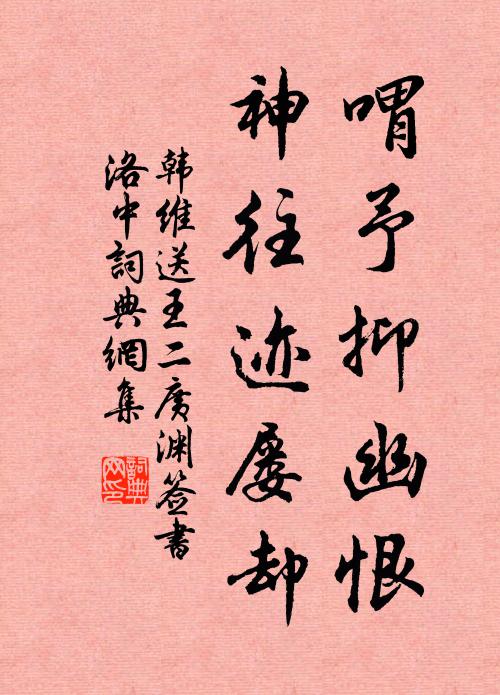 喟予抑幽恨
神往迹屡却
韩维送王二广渊签书
洛中詞典網集
詞典网印